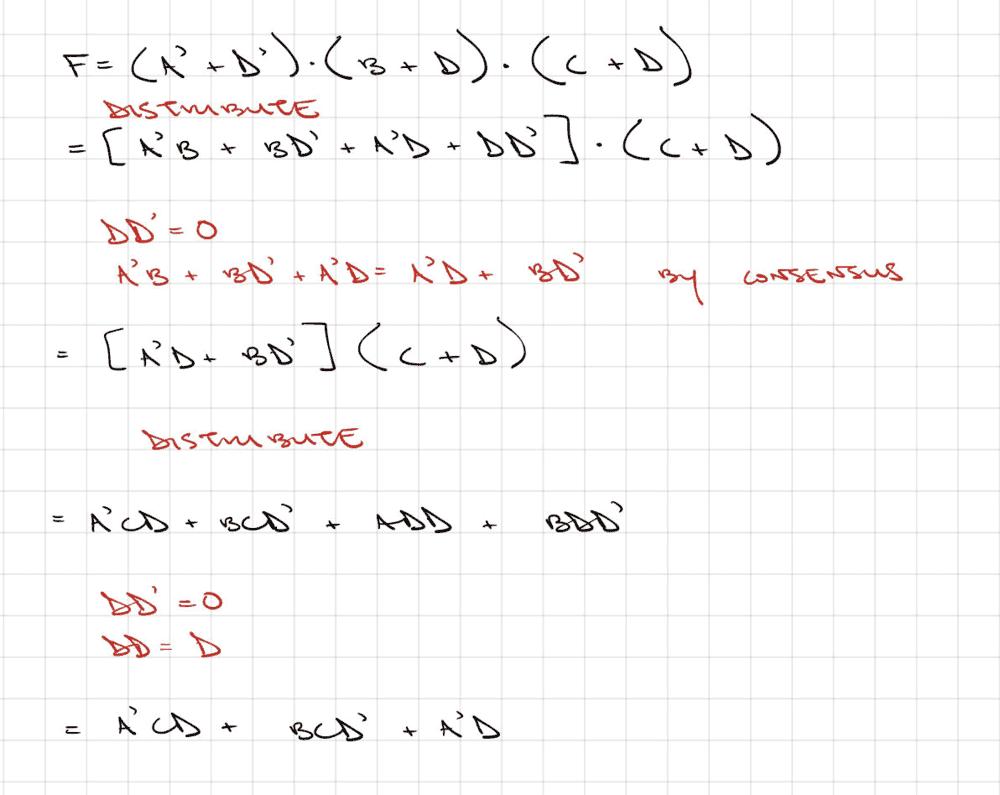 F = (A' + D') · (B + D) · (C + D)
DISTRIBUTE
= [A'B + BD' + A'D + DD'] · (C + D)
DD' = 0
A'B + BD' + A'D = A'D + BD' BY CONSENSUS
= [A'D + BD'] (C + D)
DISTRIBUTE
= A'CD + BCD' + ADD + BDD'
DD' = 0
DD = D
= A'CD + BCD' + A'D